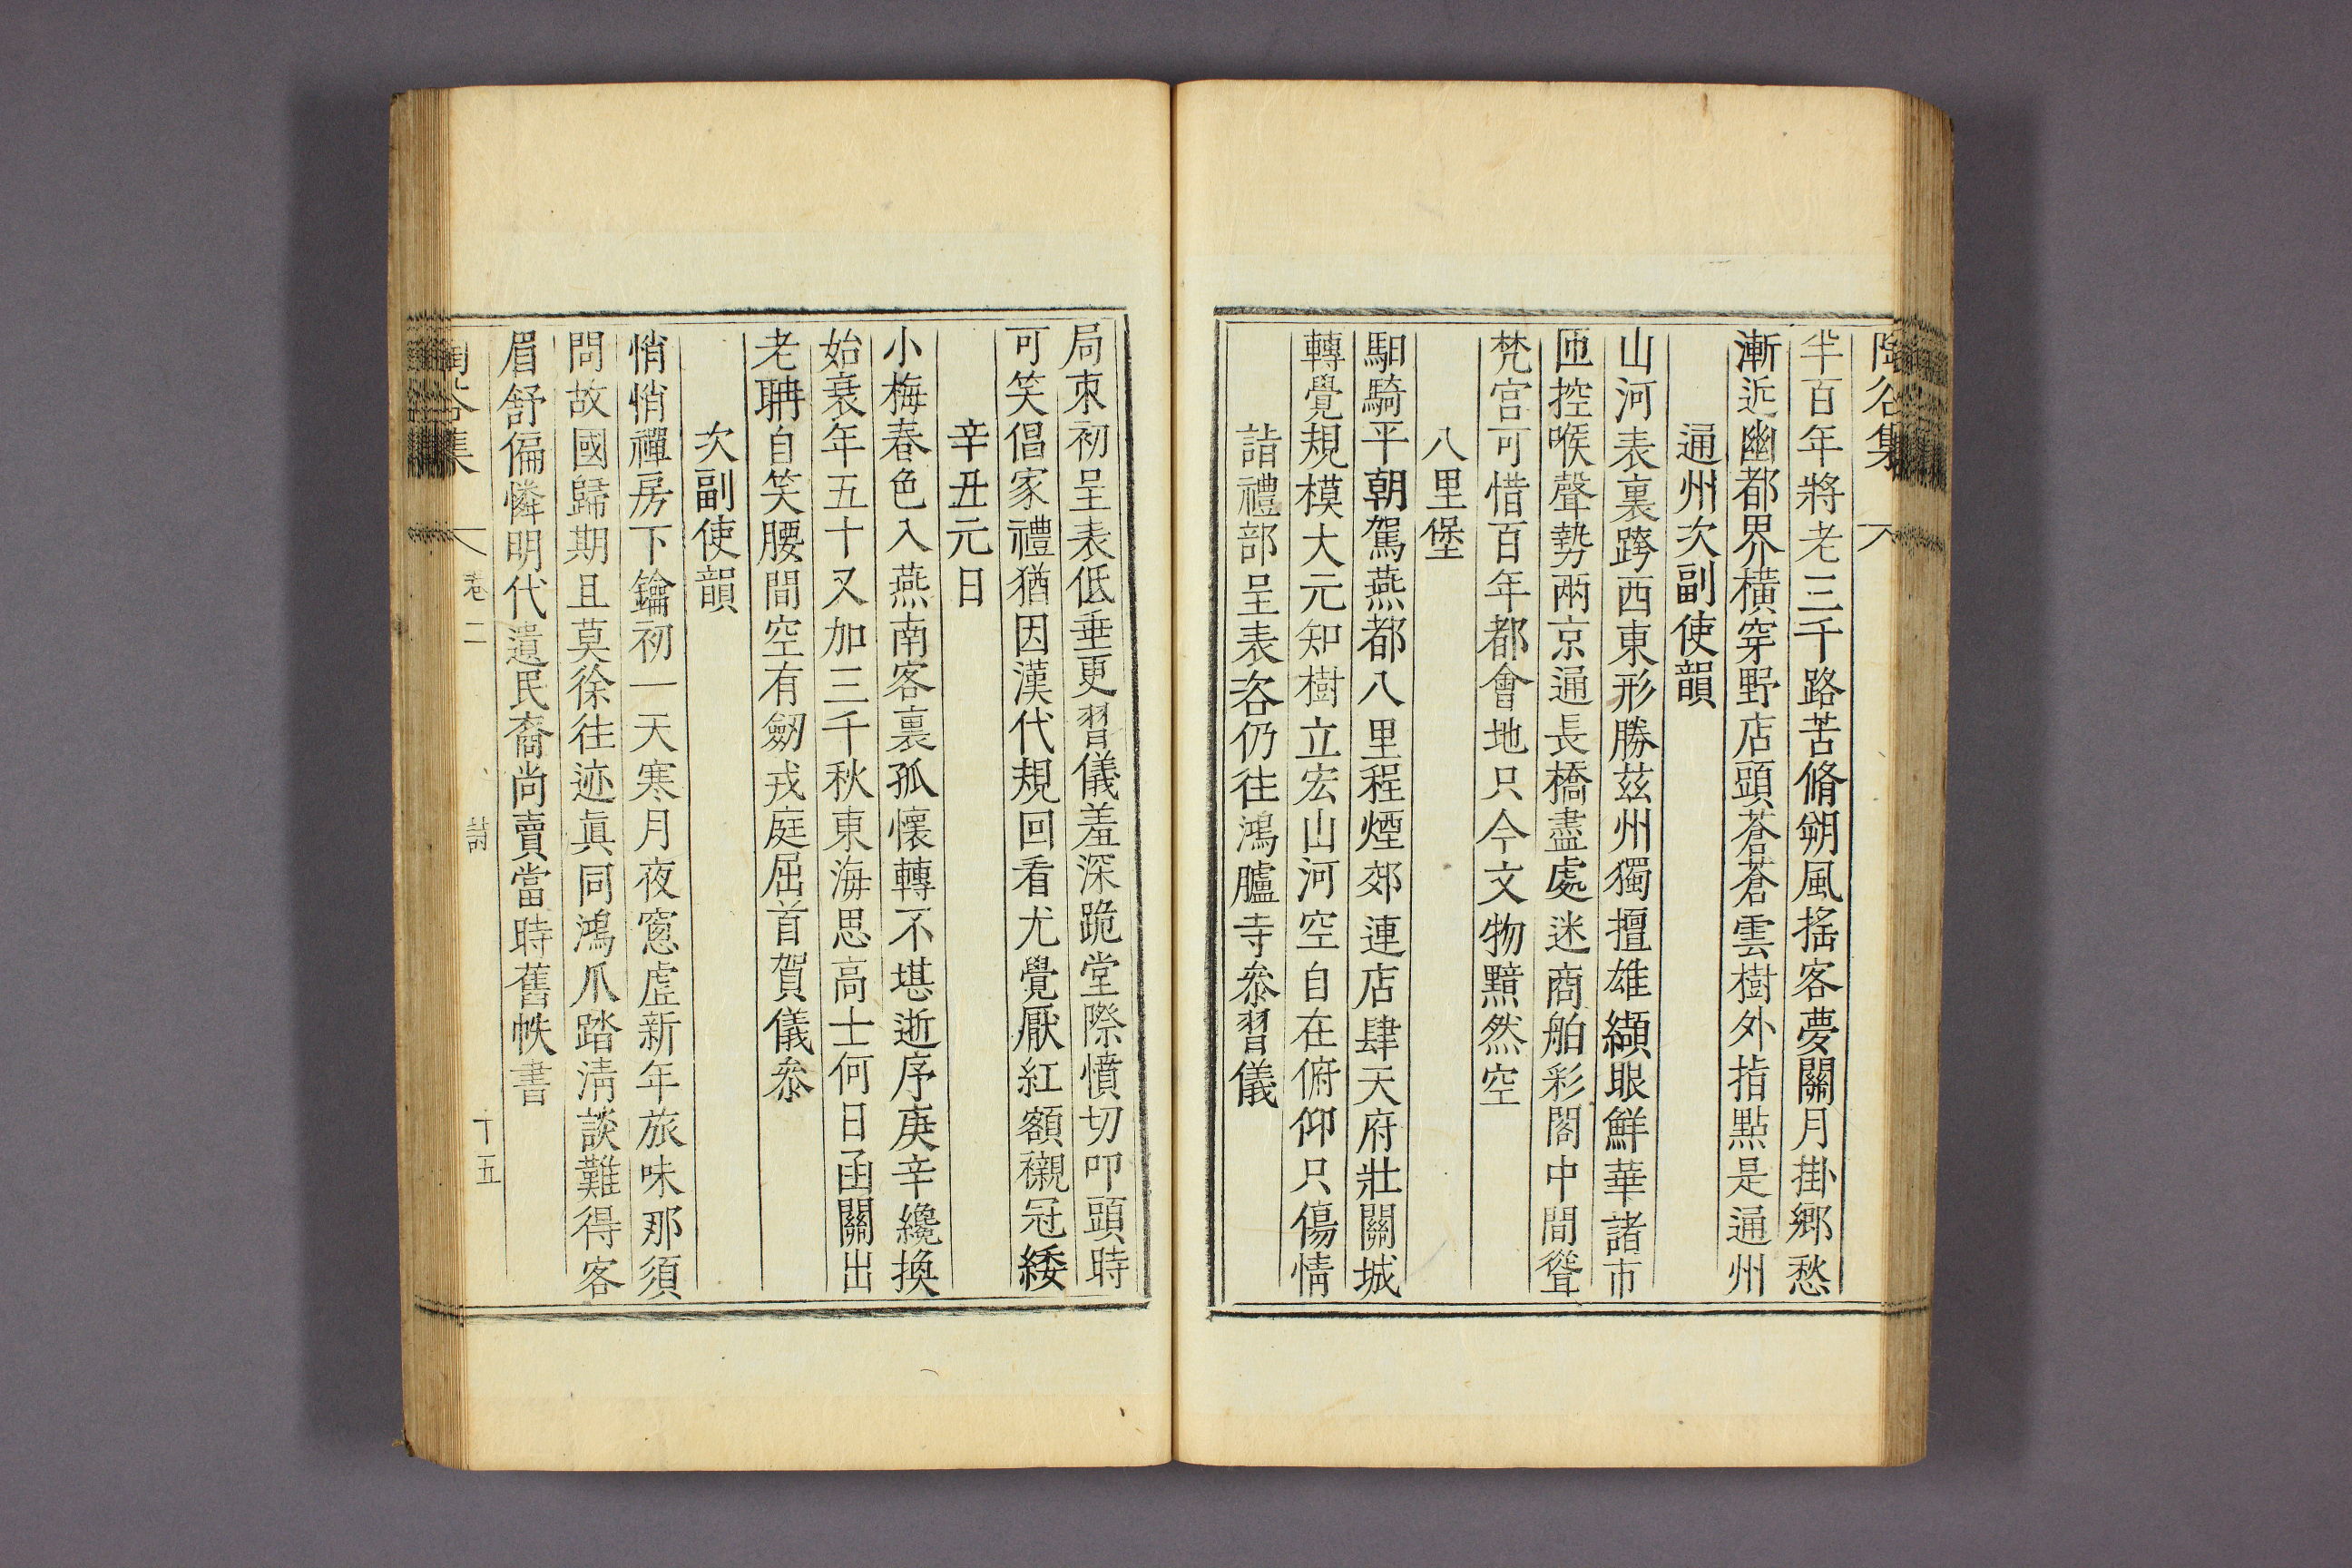 陶谷集
半百年將老三千路苦脩朔風搖客夢關月掛鄉愁
漸近幽都界橫穿野店頭蒼蒼雲樹外指點是通州
通州次副使韻
山河表裏跨西東形勝茲州獨擅雄纈眼鮮華諸市
匝控喉聲勢兩京通長橋盡處迷商舶彩閣中間聳
梵宮可惜百年都會地只今文物黯然空
八里堡
馹騎平朝駕燕都八里程煙郊連店肆天府壯關城
轉覺規模大元知樹立宏山河空自在俯仰只傷情
詣禮部呈表咨仍往鴻臚寺叅習儀
局束初呈表低垂更習儀羞深跪堂際憤切叩頭時
可笑倡家禮猶因漢代規回看尤覺厭紅額襯冠緌
辛丑元日
小梅春色入燕南客裏孤懷轉不堪逝序庚辛纔換
始衰年五十又加三千秋東海思高士何日函關出
老聃自笑腰間空有劒戎庭屈首賀儀叅
次副使韻
悄悄禪房下鑰初一天寒月夜窻虛新年旅味那須
問故國歸期且莫徐往迹眞同鴻爪踏淸談難得客
眉舒偏憐明代遺民裔尚賣當時舊帙書
陶谷集 卷二 詩 十五